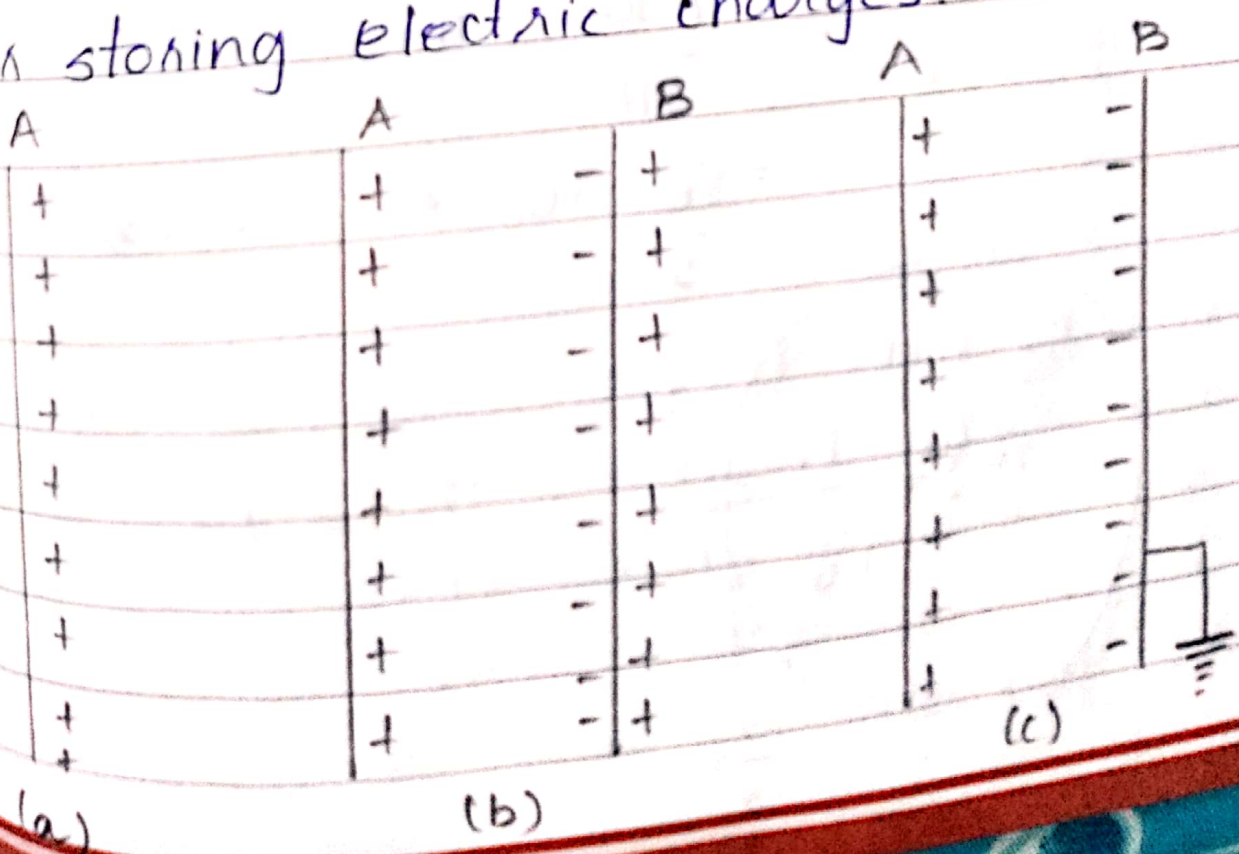 storing electric
A A B A B
+ + - + + -
+ + - + + -
+ + - + + -
+ + - + + -
+ + - + + -
+ + - + + -
+ + - + + -
+ + - + + -
+ -
(a) (b) (c)